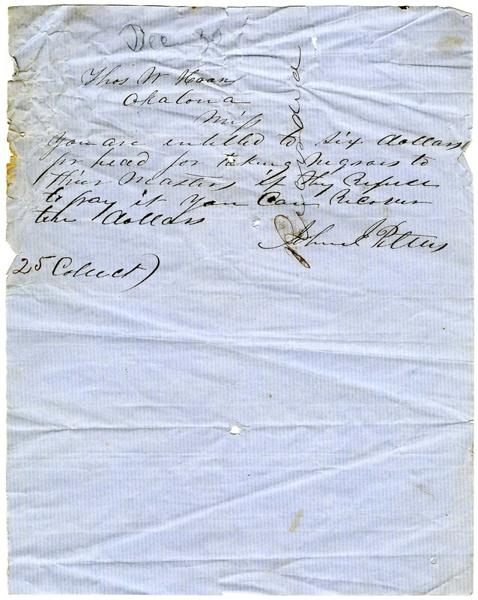 Dec 30
Thos W Hoan
Okalona
Miss
You are entitled to six dollars
pr head for taking Negroes to
their Masters if they refuse
to pay it you can recover
ten dollars
John J Peters
25 Collect)